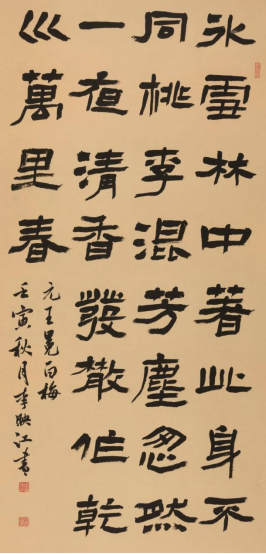 氷雪林中著此身不
同桃李混芳塵忽然
一夜清香發散作乾
巛萬里春
元王冕白梅
壬寅秋月李映江書